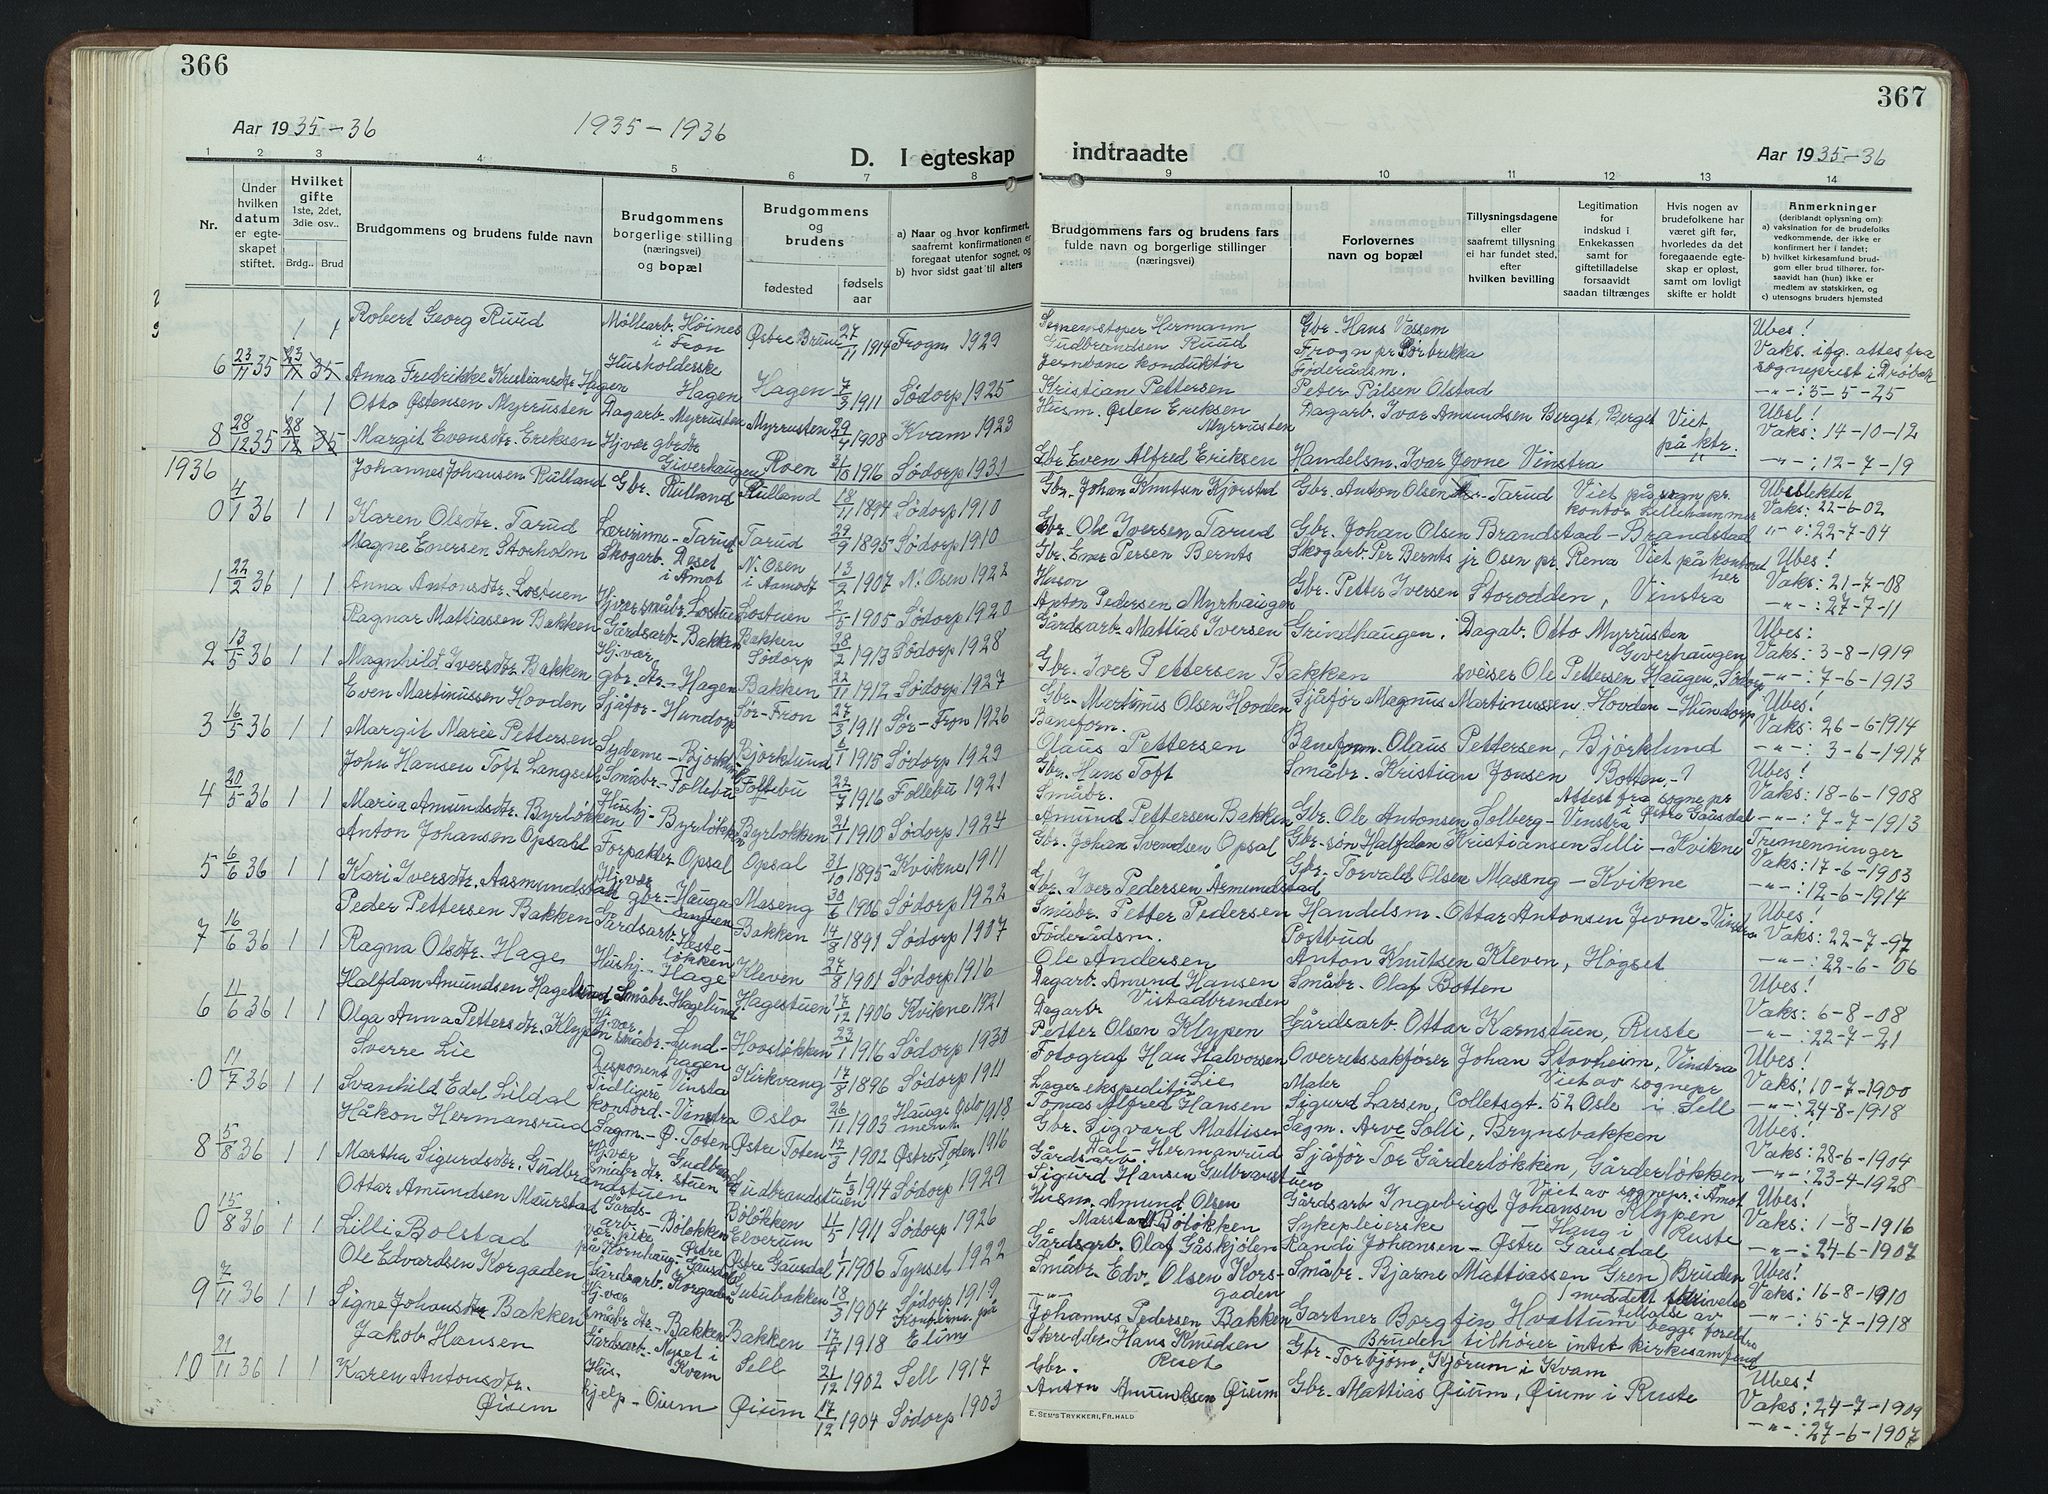 366
Aar 1935-36
1935-1936
D. I egteskap
1 2 3 4 5 6 7 8
Nr.
Under hvilken datum er egteskapet stiftet.
Hvilket gifte 1ste, 2det, 3die osv..
Brdg.. Brud
Brudgommens og brudens fulde navn
Brudgommens borgerlige stilling (næringsvei) og bopæl
Brudgommens og brudens
fødested
fødselsaar
a) Naar og hvor konfirmert, saafremt konfirmationen er foregaat utenfor sognet, og
b) hvor sidst gaat til alters
Robert Georg Ruud Møllearb. Høines i Fron Østre Bruun 27/11 1914 Frogn 1929
6 23/11 35 1 1
Anna Fredrikke Kristiansdtr Hagen Husholderske Hagen Hagen 7/3 1911 Sødorp 1925
Otto Østensen Myrrusten Dagarb. Myrrusten Myrrusten 29/4 1908 Kvam 1923
8 28/12 35 1 1
Margit Evensdtr. Eriksen Hj. vær. gbr.dtr Giverhaugen Roen 31/10 1916 Sødorp 1931
1936
Johannes Johansen Rulland Gbr. Rulland Rulland 18/11 1894 Sødorp 1910
0 4/1 36 1 1
Karen Olsdtr. Tarud Lærerinne - Tarud Tarud 29/9 1895 Sødorp 1910
Magne Enersen Storholm Skogarb. Deset i Åmot N. Osen i Aamodt 13/2 1907 N. Osen 1922
1 22/2 36 1 1
Anna Antonsdtr. Lostuen Hj. vær småbr. Lostuen Lostuen 2/5 1905 Sødorp 1920
Ragnar Mattiassen Bakken Gårdsarb. Bakken Bakken Sødorp 28/2 1913 Sødorp 1928
2 13/5 36 1 1
Magnhild Iversdtr. Bakken Hj. vær. gbr. dtr. - Hagen Bakken 22/11 1912 Sødorp 1927
Even Martinussen Hovden Sjåfør - Hundorp Sør-Fron 27/3 1911 Sør-Fron 1926
3 16/5 36 1 1
Margit Marie Pettersen Sydame - Bjorklund Bjorklund 6/1 1915 Sødorp 1929
John Hansen Toft Langset Småbr - Follebu Follebu 22/7 1916 Follebu 1921
4 20/5 36 1 1
Maria Amundsdtr. Byrløkken Hushj - Byrløkken Byrløkken 21/1 1910 Sødorp 1924
Anton Johansen Opsahl Forpakter Opsal Opsal 31/10 1895 Kvikne 1911
5 6/6 36 1 1
Kari Iversdtr. Aasmundstad Hj. vær gbr - Haugen Maseng 30/6 1906 Sødorp 1922
Peder Pettersen Bakken Gårdsarb. Hesteløkken Bakken 14/8 1891 Sødorp 1907
7 16/6 36 1 1
Ragna Olsdtr. Hage Hushj - Hage Kleven 27/8 1901 Sødorp 1916
Halfdan Amundsen Hagelund Småbr. Hagelund Hagestuen 17/12 1906 Kvikne 1921
6 11/6 36 1 1
Olga Anna Pettersdtr. Klypen Hj. vær småbr. - Lundhagen Hovsløkken 23/1 1916 Sødorp 1930
Sverre Lie Disponent Vinstra Kirkvang 17/8 1896 Sødorp 1911
0 11/7 36 1 1
Svanhild Edel Lildal Tidligere kontord. - Vinstra Oslo 26/11 1903 Hauge Oslo menh. 1918
Håkon Hermansrud Sagm. - Ø. Toten Østre Toten 17/3 1902 Østre Toten 1916
8 5/8 36 1 1
Martha Sigurdsdtr. Gudbrandstuen Hj. vær småbr dtr. Gudbrandstuen Gudbrandstuen 1/3 1914 Sødorp 1929
Ottar Amundsen Maurstad Gårdsarb. - Bøløkken Bøløkken 4/5 1911 Sødorp 1926
0 15/8 36 1 1
Lilli Bolstad vær. pike på Kornhaug - Østre Gausdal Elverum Østre Gausdal 1/1 1906 Tynset 1922
Ole Edvardsen Korgaden Gårdsarb. Korgaden Sutubakken 18/3 1904 Sødorp 1919
9 7/11 36 1 1
Signe Johansdtr Bakken Hj. vær småbr dtr. - Bakken Bakken 17/4 1918 Elim
Jakob Hansen Gårdsarb. - Nyset i Kvam Sell 21/12 1902 Sell 1917
10 21/11 36 1 1
Karen Antonsdtr. Øium Hushjelp - Øium Øium 17/12 1904 Sødorp 1903
367
indtraadte
Aar 1935-36
9 10 11 12 13 14
Brudgommens fars og brudens fars fulde navn og borgerlige stillinger (næringsvei)
Forlovernes navn og bopæl
Tillysningsdagene eller saafremt tillysning ei har fundet sted, efter hvilken bevilling
Legitimation for indskud i Enkekassen samt for giftetilladelse forsaavidt saadan tiltrænges
Hvis nogen av brudefolkene har været gift før, hvorledes da det foregaaende egteskap er opløst, samt om lovligt skifte er holdt
Anmerkninger (deriblandt oplysning om):
a) vaksination for de brudefolks vedkommende, der ikke er konfirmert her i landet;
b) hvilket kirkesamfund brudgom eller brud tilhører, forsaavidt han (hun) ikke er medlem av statskirken, og
c) utensogns bruders hjemsted
Hermann Gudbrandsen Ruud Gbr. Hans Vassem Frogn pr Sørbrekka Ubes! Vaks. ifg. attest fra sogneprest i Drøbak
Jernbanekonduktør Kristian Pettersen Føderådsm. Peter Pålsen Olstad -"- : 5-5-25
Husm. Østen Eriksen Myrrusten Dagarb. Ivar Amundsen Berget, Berget Viet på ktr. Ubesl! Vaks: 14-10-12
Gbr Even Alfred Eriksen Handelsm. Ivar Jevne Vinstra -"- : 12-7-19
Gbr. Johan Knutsen Kjorstad Gbr. Anton Olsen Tarud Viet på sogn pr. kontor Lillehammer Ubeslektet Vaks: 22-6-02
Gbr. Ole Iversen Tarud Gbr. Johan Olsen Brandstad - Brandstad " " : 22-7-04
Gbr. Ener Persen Bernts Huson Skogarb. Per Bernts jr Osen pr. Rena Viet på kontoret her Ubes! Vaks: 21-7-08
Anton Pedersen Myrhaugen Gbr. Petter Iversen Storodden, Vinstra -"- : 27-7-11
Gårdsarb. Mattias Iversen Grindhaugen. Dagab. Otto Myrrusten Giverhaugen Ubes: Vaks: 3-8-1919
Gbr. Iver Pettersen Bakken sveiser Ole Pettersen Haugen, Sødorp -"- : 7-6-1913
Gbr. Martinus Olsen Hovden Sjåfør Magnus Martinussen Hovden - Hundorp Ubes! Vaks: 26-6-1914
Baneform. Olaus Pettersen Baneform. Olaus Pettersen, Bjørklund -"- : 3-6-1917
Gbr. Hans Toft Småbr. Kristian Jonsen Botten - ? Ubes! Vaks: 18-6-1908
Småbr. Amund Pettersen Bakken Gbr. Ole Antonsen Solberg - Vinstra Attest fra sogne pr i Østre Gausdal -"- : 7-7-1913
Gbr. Johan Svendsen Opsal Gbr. søn Halfdan Kristiansen Lilli - Kvikne Tremenninger Vaks: 17-6-1903
Gbr. Iver Pedersen Åsmundstad Gbr. Torvald Olsen Maseng - Kvikne -"- : 12-6-1914
Småbr. Petter Pedersen Handelsm. Ottar Antonsen Jevne - Vinstra Ubes! Vaks: 22-7-97
Føderådsm. Ole Andersen Postbud Anton Knutsen Kleven, Høgset -"- : 22-6-06
Dagarb. Amund Hansen Vistadbrenden Småbr. Olaf Botten Ubes! Vaks: 6-8-08
Dagarb Petter Olsen Klypen Gårdsarb. Ottar Karnstuen, Ruste -"- : 22-7-21
Fotograf Hans Halvorsen Lie Overretssakfører Johan Stovheim, Vinstra Ubes! Vaks: 10-7-1900
Lagerekspeditør Tomas Alfred Hansen Maler Sigurd Larsen, Colletsgt. 52 Oslo Viet av sognepr i Sell -"- : 24-8-1918
Gbr. Sigvard Mattisen Hermanrud Sagm. Arve Solli, Brynsbakken Ubes! Vaks: 28-6-1904
Gårdsarb. Sigurd Hansen Gulbranstuen Sjåfør Tor Gårderløkken, Gårderløkken -"- : 23-4-1928
Husm. Amund Olsen Marstad Bøløkken Gårdsarb Ingebrigt Johansen Klypen Ruste Viet av sognepr. i Åmot Ubes! Vaks: 1-8-1916
Gårdsarb. Olaf Gåskjølen Sykepleierske Randi Johansen - Haug i Østre Gausdal -"- : 24-6-1907
Småbr. Edv. Olsen Korsgaden Småbr. Bjarne Mattiassen Gren Ubes! Vaks: 16-8-1910
-"- Johannes Pedersen Bakken Gartner Bergfin Hvattum (Bruden meddelt skrivelse tillatelse av begge foreldre -"- : 5-7-1918
Bruden tilhører intet kirkesamfund
Skredder Hans Knudsen Ruset Gbr. Torbjørn Kjørum i Kvam Ubes! Vaks: 24-7-1909
Gbr. Anton Amundsen Øium Gbr. Mattias Øium, Øium i Ruste -"- : 27-6-1907
E. SEM'S TRYKKERI, FR.HALD